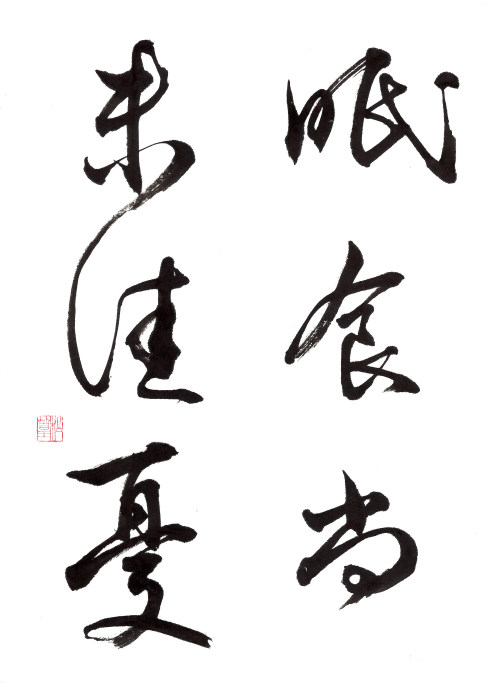 眠食尚
未佳憂